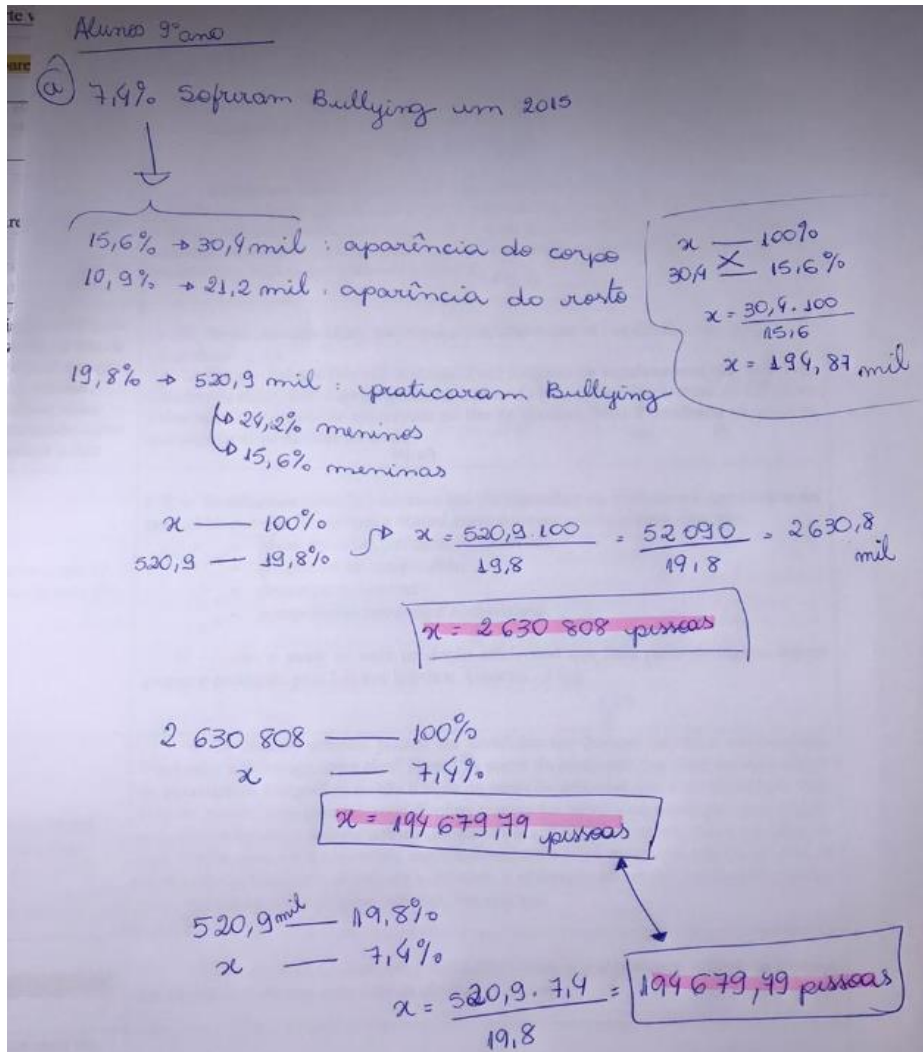 Alunos 9º ano
a) 7,4% Sofreram Bullying em 2015
15,6% → 30,4 mil : aparência do corpo
10,9% → 21,2 mil : aparência do rosto
x — 100%
30,4 — 15,6%
x = 30,4 . 100 / 15,6
x = 194,87 mil
19,8% → 520,9 mil : praticaram Bullying
↳ 24,2% meninos
↳ 15,6% meninas
x — 100%
520,9 — 19,8%
x = 520,9 . 100 / 19,8 = 52 090 / 19,8 = 2630,8 mil
x = 2 630 808 pessoas
2 630 808 — 100%
x — 7,4%
x = 194 679,79 pessoas
520,9 mil — 19,8%
x — 7,4%
x = 520,9 . 7,4 / 19,8 = 194 679,79 pessoas